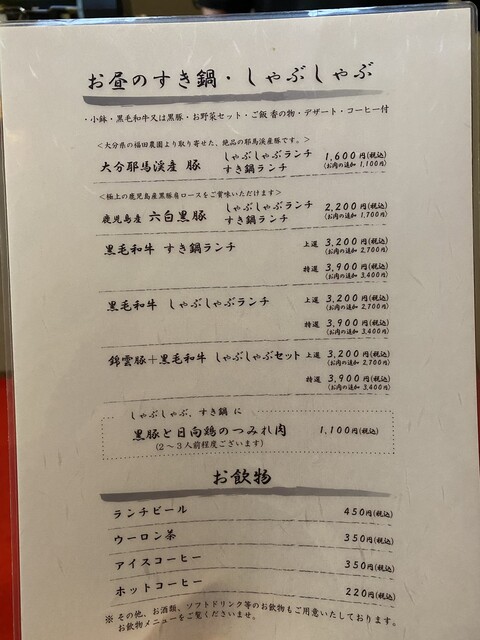 お昼のすき鍋・しゃぶしゃぶ
・小鉢・黒毛和牛又は黒豚・お野菜セット・ご飯 香の物・デザート・コーヒー付
<大分県の福田農園より取り寄せた、絶品の耶馬渓産豚です。>
大分耶馬渓産 豚 しゃぶしゃぶランチ すき鍋ランチ 1,600円(税込)
(お肉の追加 1,100円)
<極上の鹿児島産黒豚肩ロースをご賞味いただけます>
鹿児島産 六白黒豚 しゃぶしゃぶランチ すき鍋ランチ 2,200円(税込)
(お肉の追加 1,700円)
黒毛和牛 すき鍋ランチ 上選 3,200円(税込)
(お肉の追加 2,700円)
特選 3,900円(税込)
(お肉の追加 3,400円)
黒毛和牛 しゃぶしゃぶランチ 上選 3,200円(税込)
(お肉の追加 2,700円)
特選 3,900円(税込)
(お肉の追加 3,400円)
錦雲豚+黒毛和牛 しゃぶしゃぶセット 上選 3,200円(税込)
(お肉の追加 2,700円)
特選 3,900円(税込)
(お肉の追加 3,400円)
しゃぶしゃぶ、すき鍋 に
黒豚と日向鶏のつみれ肉 1,100円(税込)
(2〜3人前程度ございます)
お飲物
ランチビール 450円(税込)
ウーロン茶 350円(税込)
アイスコーヒー 350円(税込)
ホットコーヒー 220円(税込)
※ その他、お酒類、ソフトドリンク等のお飲物もご用意いたしております。
お飲物メニューをご覧くださいませ。